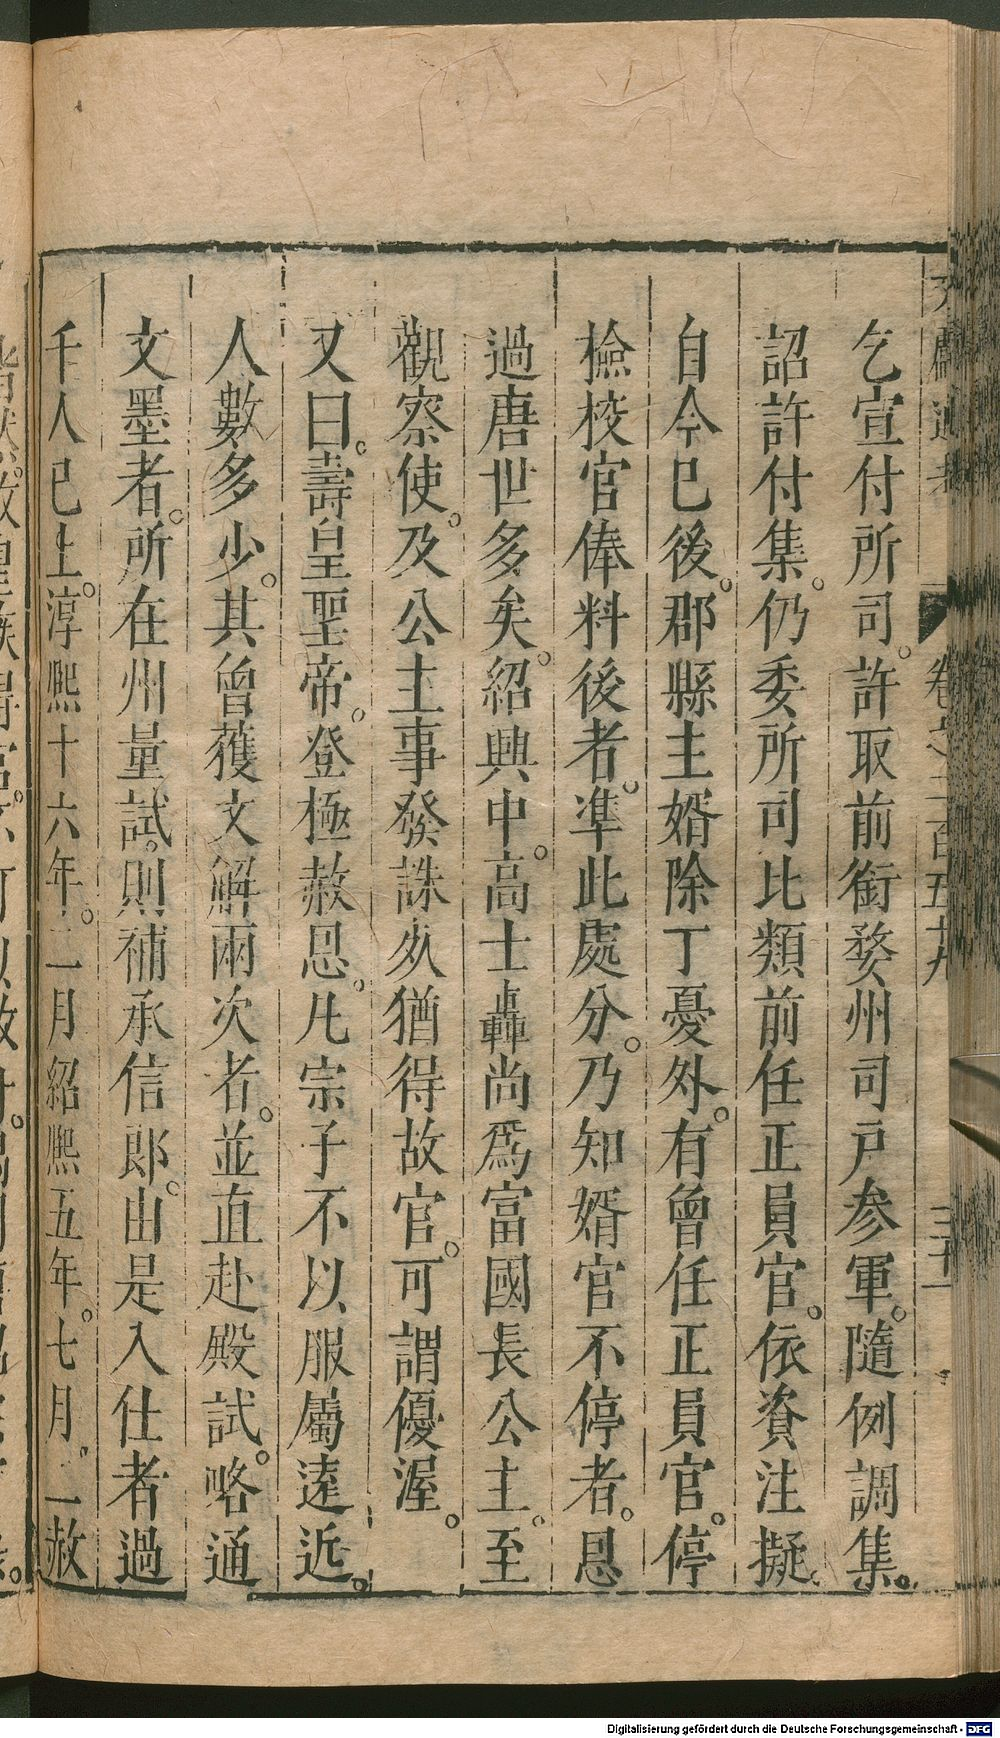 乞宣付所司。許取前銜婺州司戸参軍。隨例調集。
詔許付集。仍委所司比類前任正員官。依資注擬。
自今巳後。郡縣主婿除丁憂外。有曾任正員官。停
撿挍官俸料後者。凖此處分。乃知婿官不停者。恩
過唐世多矣。紹興中。高士轟尚爲富國長公主。至
觀察使。及公主事發誅夊猶得故官。可謂優渥。
又曰。壽皇聖帝。登極赦恩。凢宗子不以服屬逺近。
人數多少。其曾獲文解兩次者。並直赴殿試。略通
文墨者。所在州量試。則補承信郎。由是入仕者過
千人巳上。淳熙十六年。二月紹熙五年。七月。二赦
卷之二百五十九
三十一
Digitalisierung gefördert durch die Deutsche Forschungsgemeinschaft - DFG